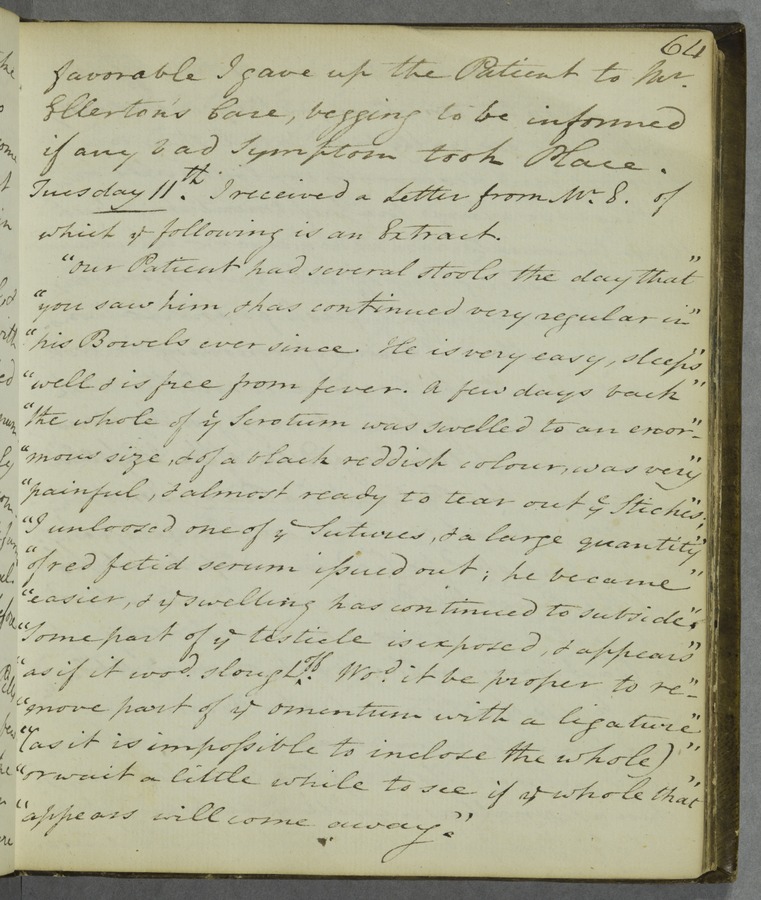 64
favorable I gave up the Patient to Mr.
Ellerton's Care, begging to be informed
if any bad Symptom took Place.
Tuesday 11th. I received a Letter from Mr. E. of
which ye following is an Extract.
"our Patient had several stools the day that"
"you saw him, & has continued very regular in"
"his Bowels ever since. He is very easy, sleeps"
"well & is free from fever. A few days back"
"the whole of ye Scrotum was swelled to an enor-"
"mous size, & of a black reddish colour, was very"
"painful, & almost ready to tear out ye Stiches;"
"I unloosed one of ye Sutures, & a large quantity"
"of red fetid serum issued out; he became"
"easier, & ye swelling has continued to subside."
"Some part of ye testicle is exposed, & appears"
"as if it wod. slough off. Wod. it be proper to re-"
"move part of ye omentum with a ligature"
"(as it is impossible to inclose the whole)"
"or wait a little while to see if ye whole that"
"appears will come away."